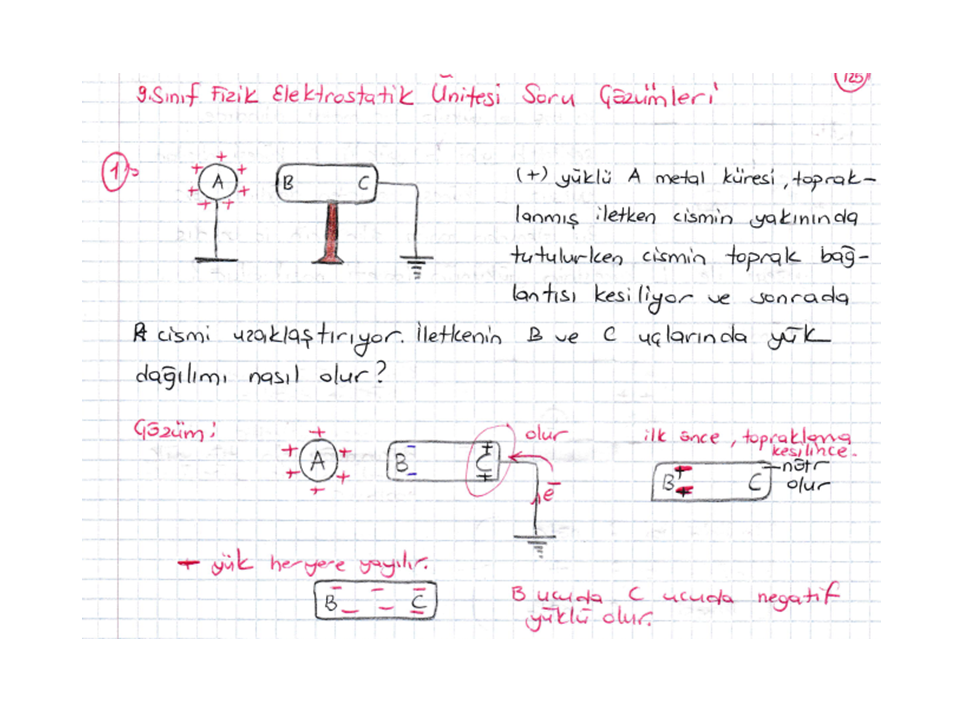 125
9.Sınıf Fizik Elektrostatik Ünitesi Soru Çözümleri
1
A
B C
(+) yüklü A metal küresi, toprak-
lanmış iletken cismin yakınında
tutulurken cismin toprak bağ-
lantısı kesiliyor ve sonrada
A cismi uzaklaştırıyor. İletkenin B ve C uçlarında yük
dağılımı nasıl olur?
Çözüm:
A
B C
olur
e
ilk önce, topraklama
kesilince.
B C
nötr
olur
yük heryere yayılır.
B C
B ucuda C ucuda negatif
yüklü olur.